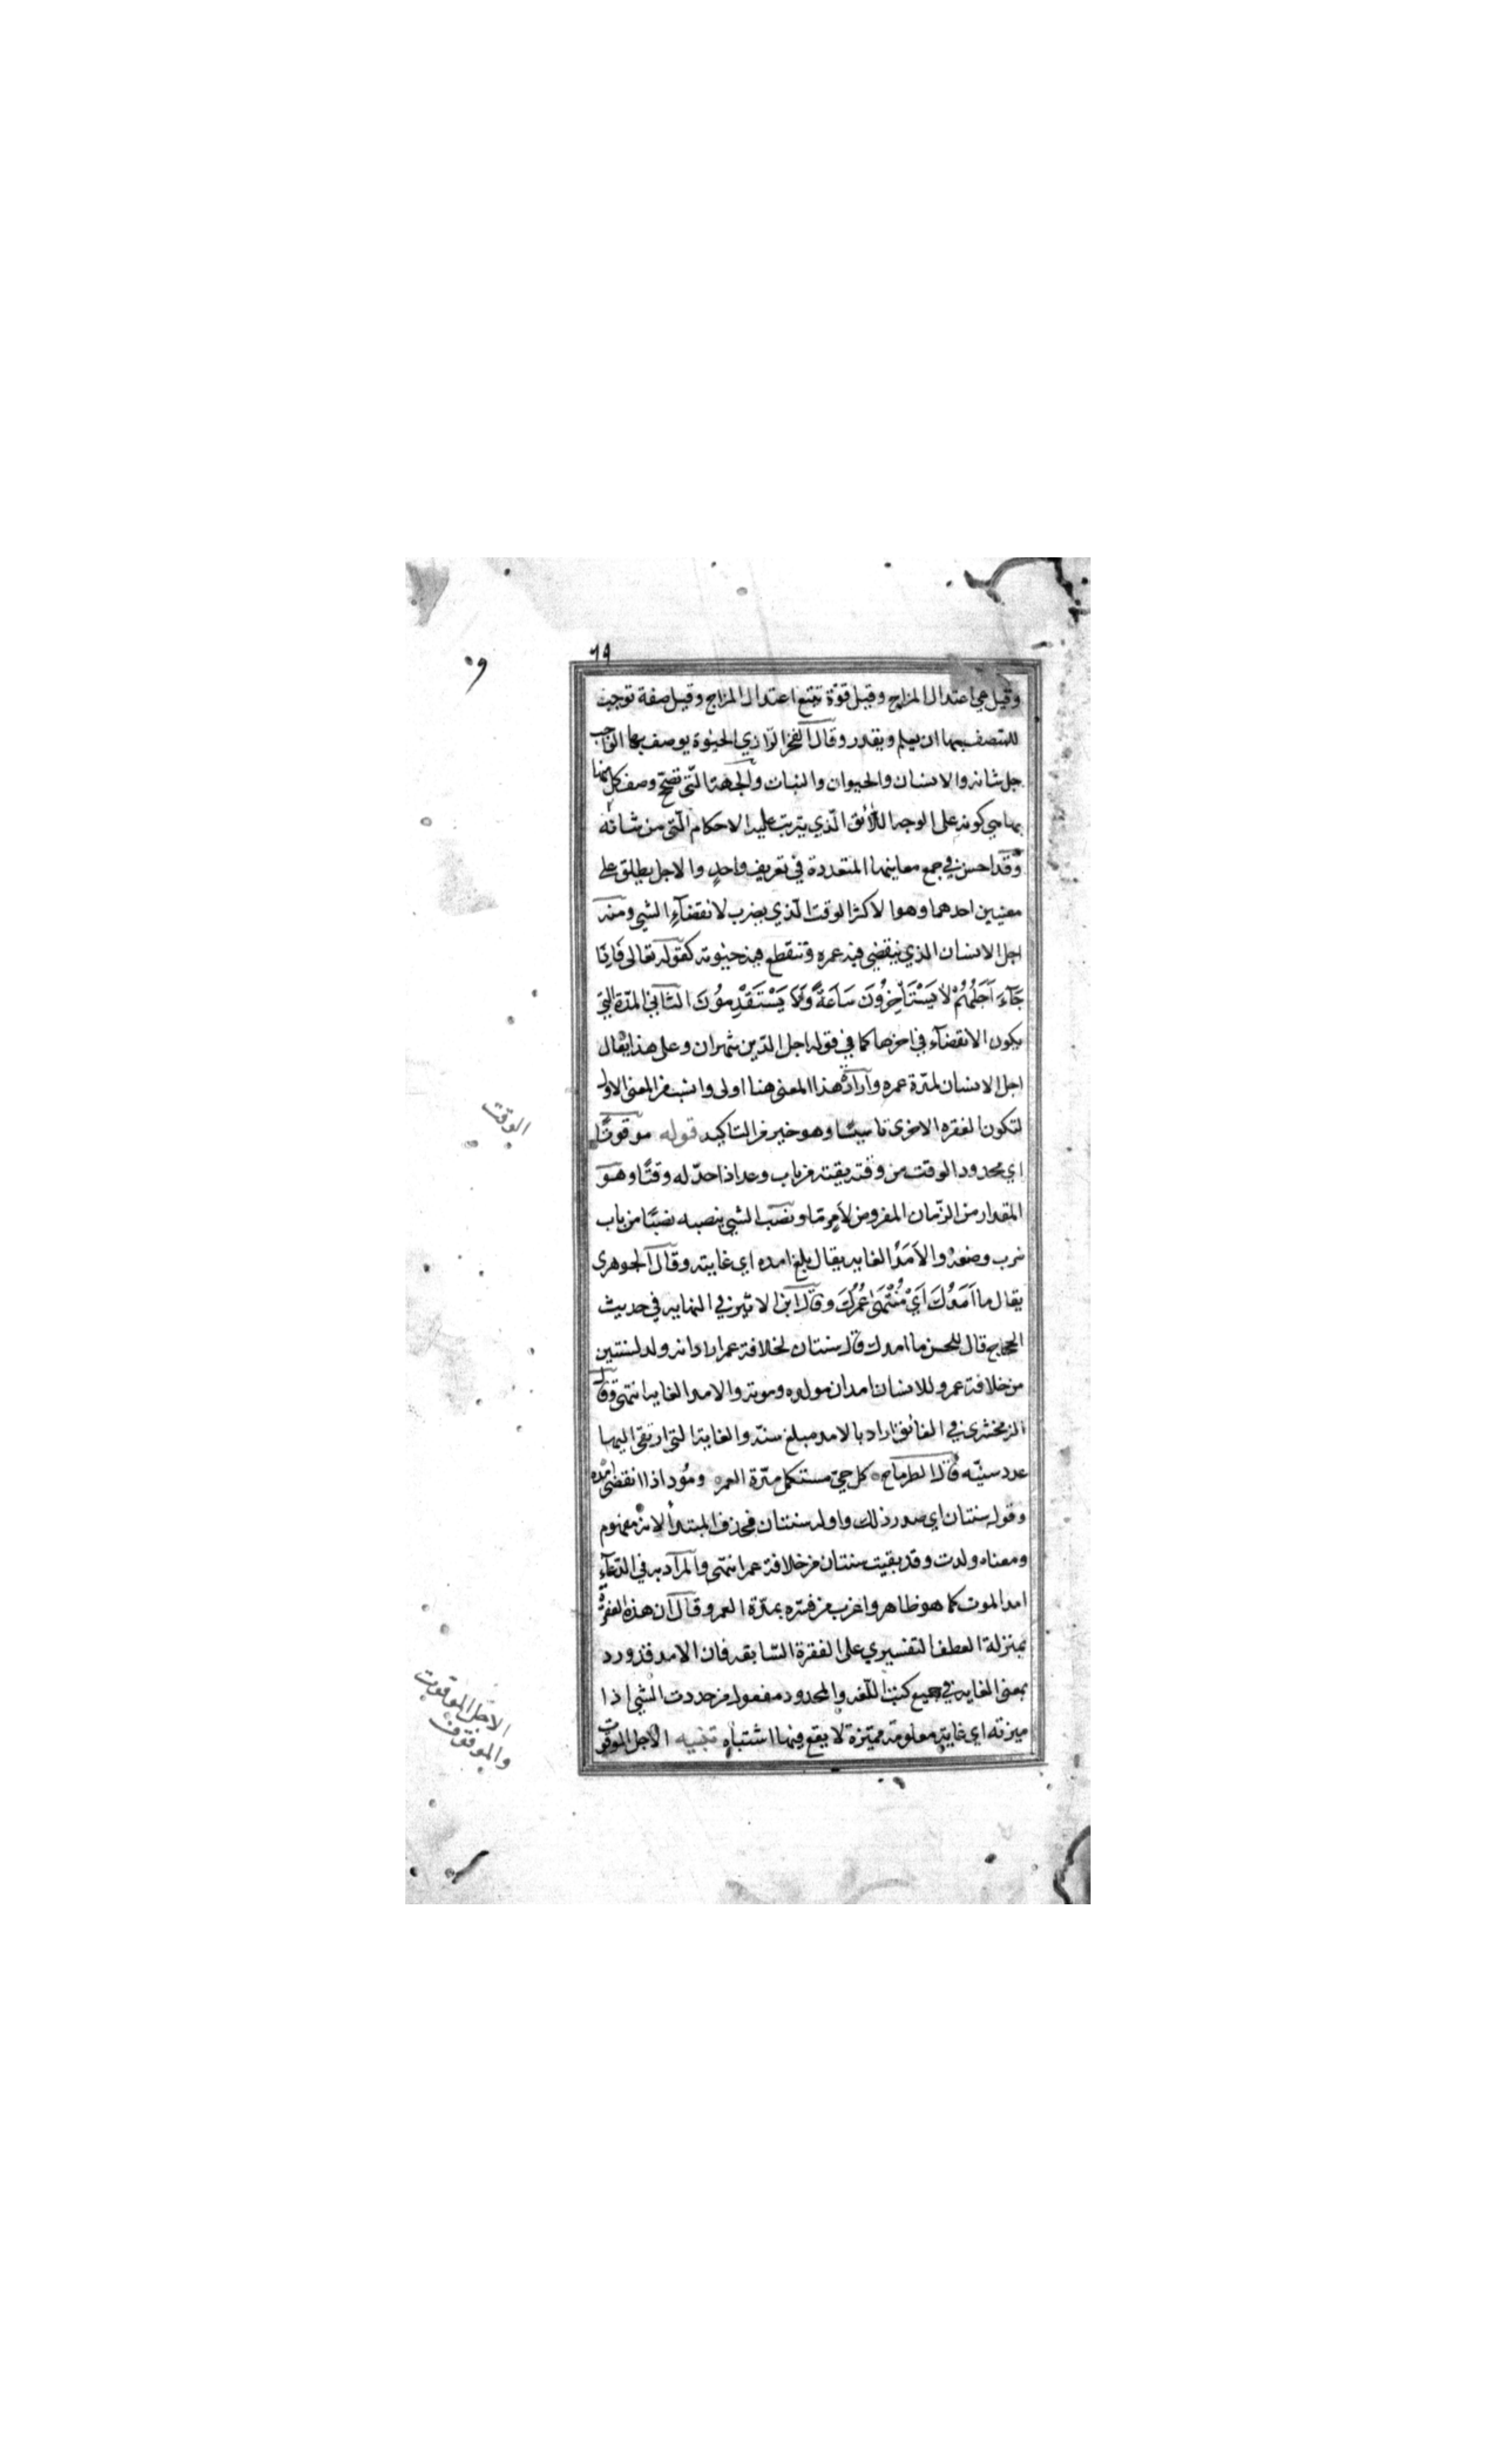 ٦٩
وقيل هي اعتدال المزاج وقيل قوة تتبع اعتدال المزاج وقيل صفة توجب
للمتصف بها ان يعلم ويقدر وقال الفخر الرازي الحيوة يوصف بها الواجب
جل شانه والانسان والحيوان والنبات والجهة التي تصحح وصف كل منها
بها هي كونه على الوجه اللائق الذي يترتب عليه الاحكام التي من شانه
وقد احسن في جمع معانيها المتعددة في تعريف واحد والاجل يطلق على
معنيين احدهما وهو الاكثر الوقت الذي يضرب لانقضاء الشي ومنه
اجل الانسان الذي ينقضي فيه عمره وتنقطع فيه حيوته كقوله تعالى فاذا
جَآءَ اَجَلُهُمْ لاَ يَسْتَأخِرُونَ سَاعَةً وَلاَ يَسْتَقْدِمُونَ الثاني المدة التي
يكون الانقضاء في اخرها كما في قوله اجل الدين شهران وعلى هذا يقال
اجل الانسان لمدة عمره وارادة هذا المعنى هنا اولى وانسب من المعنى الاول
لتكون الفقره الاخرى تاسيسًا وهو خير من التاكيد قوله موقوتًا
اي محدود الوقت من وقته يقته من باب وعد اذا حد له وقتًا وهو
المقدار من الزمان المفروض لامر ما ونصب الشي ينصبه نصبًا من باب
ضرب وضعه والاَمَدُ الغايه يقال بلغ امده اي غايته وقال الجوهرى
يقال ما اَمَدُكَ اَيْ مُنْتَهَى عُمُرِكَ وقال ابن الاثير في النهايه في حديث
الحجاج قال للحسن ما امدك قال سنتان لخلافة عمر اراد انه ولد لسنتين
من خلافة عمر وللانسان امدان مولده وموته والامد الغايه انتهى وقال
الزمخشرى في الفائق اراد بالامد مبلغ سنه والغاية التي ارتقى اليها
عدد سنيه قال الطرماح كل حي مستكمل مدة العمر ومُود اذا انقضى امده
وقوله سنتان اي صدر ذلك واوله سنتان فحذف المبتدأ لانه مفهوم
ومعناه ولدت وقد بقيت سنتان من خلافة عمر انتهى والمراد به في الدعاء
امد الموت كما هو ظاهر واغرب من فسره بمدة العمر وقال ان هذه الفقرة
بمنزلة العطف التفسيري على الفقرة السابقه فان الامد قد ورد
بمعنى الغايه في جميع كتب اللغه والمحدود مفعول من حددت الشي اذا
ميزته اي غاية معلومة مميزة لا يقع فيها اشتباه تنبيه الاجل الموقوت
الوقت
الاجل الموقوت
والموقوف